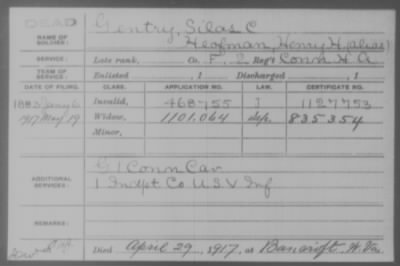 DEAD
NAME OF SOLDIER: Gentry, Silas C
Heofman, Henry H. (alias)
SERVICE: Late rank, Co. F, 2 Reg't Conn H A
TERM OF SERVICE: Enlisted , 1 Discharged , 1
DATE OF FILING. CLASS. APPLICATION NO. LAW. CERTIFICATE NO.
1883 Jany 6 Invalid, 468755 I 1127753
1917 May 19 Widow, 1101.064 835354
Minor,
ADDITIONAL SERVICES: G 1 Conn Cav
1 Indpt Co U.S.V Inf
REMARKS:
Died April 29, 1917, at Bancroft, W. Va.